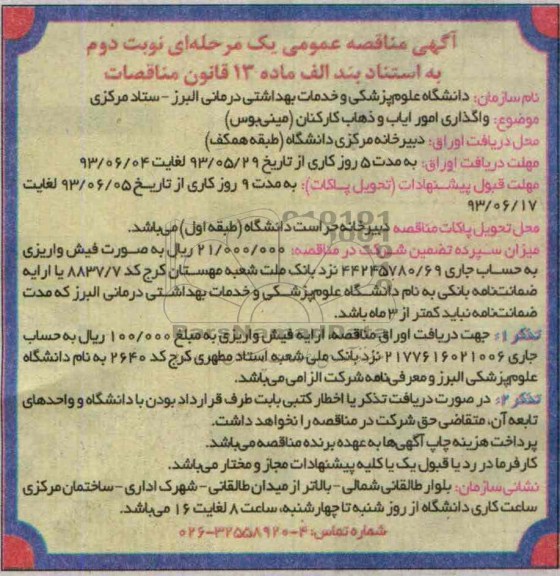 آگهی مناقصه عمومی یک مرحله‌ای نوبت دوم
به استناد بند الف ماده ۱۳ قانون مناقصات
نام سازمان: دانشگاه علوم پزشکی و خدمات بهداشتی درمانی البرز - ستاد مرکزی
موضوع: واگذاری امور ایاب و ذهاب کارکنان (مینی‌بوس)
محل دریافت اوراق: دبیرخانه مرکزی دانشگاه (طبقه همکف)
مهلت دریافت اوراق: به مدت ۵ روز کاری از تاریخ ۹۳/۰۵/۲۹ لغایت ۹۳/۰۶/۰۴
مهلت قبول پیشنهادات (تحویل پاکات): به مدت ۹ روز کاری از تاریخ ۹۳/۰۶/۰۵ لغایت
۹۳/۰۶/۱۷
محل تحویل پاکات مناقصه دبیرخانه حراست دانشگاه (طبقه اول) می‌باشد.
میزان سپرده تضمین شرکت در مناقصه: ۲۱/۰۰۰/۰۰۰ ریال به صورت فیش واریزی
به حساب جاری ۴۴۲۴۵۷۸۰/۶۹ نزد بانک ملت شعبه مهستان کرج کد ۸۸۳۷/۷ یا ارایه
ضمانت‌نامه بانکی به نام دانشگاه علوم پزشکی و خدمات بهداشتی درمانی البرز که مدت
ضمانت‌نامه نباید کمتر از ۳ ماه باشد.
تذکر ۱: جهت دریافت اوراق مناقصه، ارایه فیش واریزی به مبلغ ۱۰۰/۰۰۰ ریال به حساب
جاری ۲۱۷۷۶۱۶۰۲۱۰۰۶ نزد بانک ملی شعبه استاد مطهری کرج کد ۲۶۴۰ به نام دانشگاه
علوم پزشکی البرز و معرفی‌نامه شرکت الزامی می‌باشد.
تذکر ۲: در صورت دریافت تذکر یا اخطار کتبی بابت طرف قرارداد بودن با دانشگاه و واحدهای
تابعه آن، متقاضی حق شرکت در مناقصه را نخواهد داشت.
پرداخت هزینه چاپ آگهی‌ها به عهده برنده مناقصه می‌باشد.
کارفرما در رد یا قبول یک یا کلیه پیشنهادات مجاز و مختار می‌باشد.
نشانی سازمان: بلوار طالقانی شمالی - بالاتر از میدان طالقانی - شهرک اداری - ساختمان مرکزی
ساعت کاری دانشگاه از روز شنبه تا چهارشنبه، ساعت ۸ لغایت ۱۶ می‌باشد.
شماره تماس: ۴-۳۲۵۵۸۹۲۰-۰۲۶